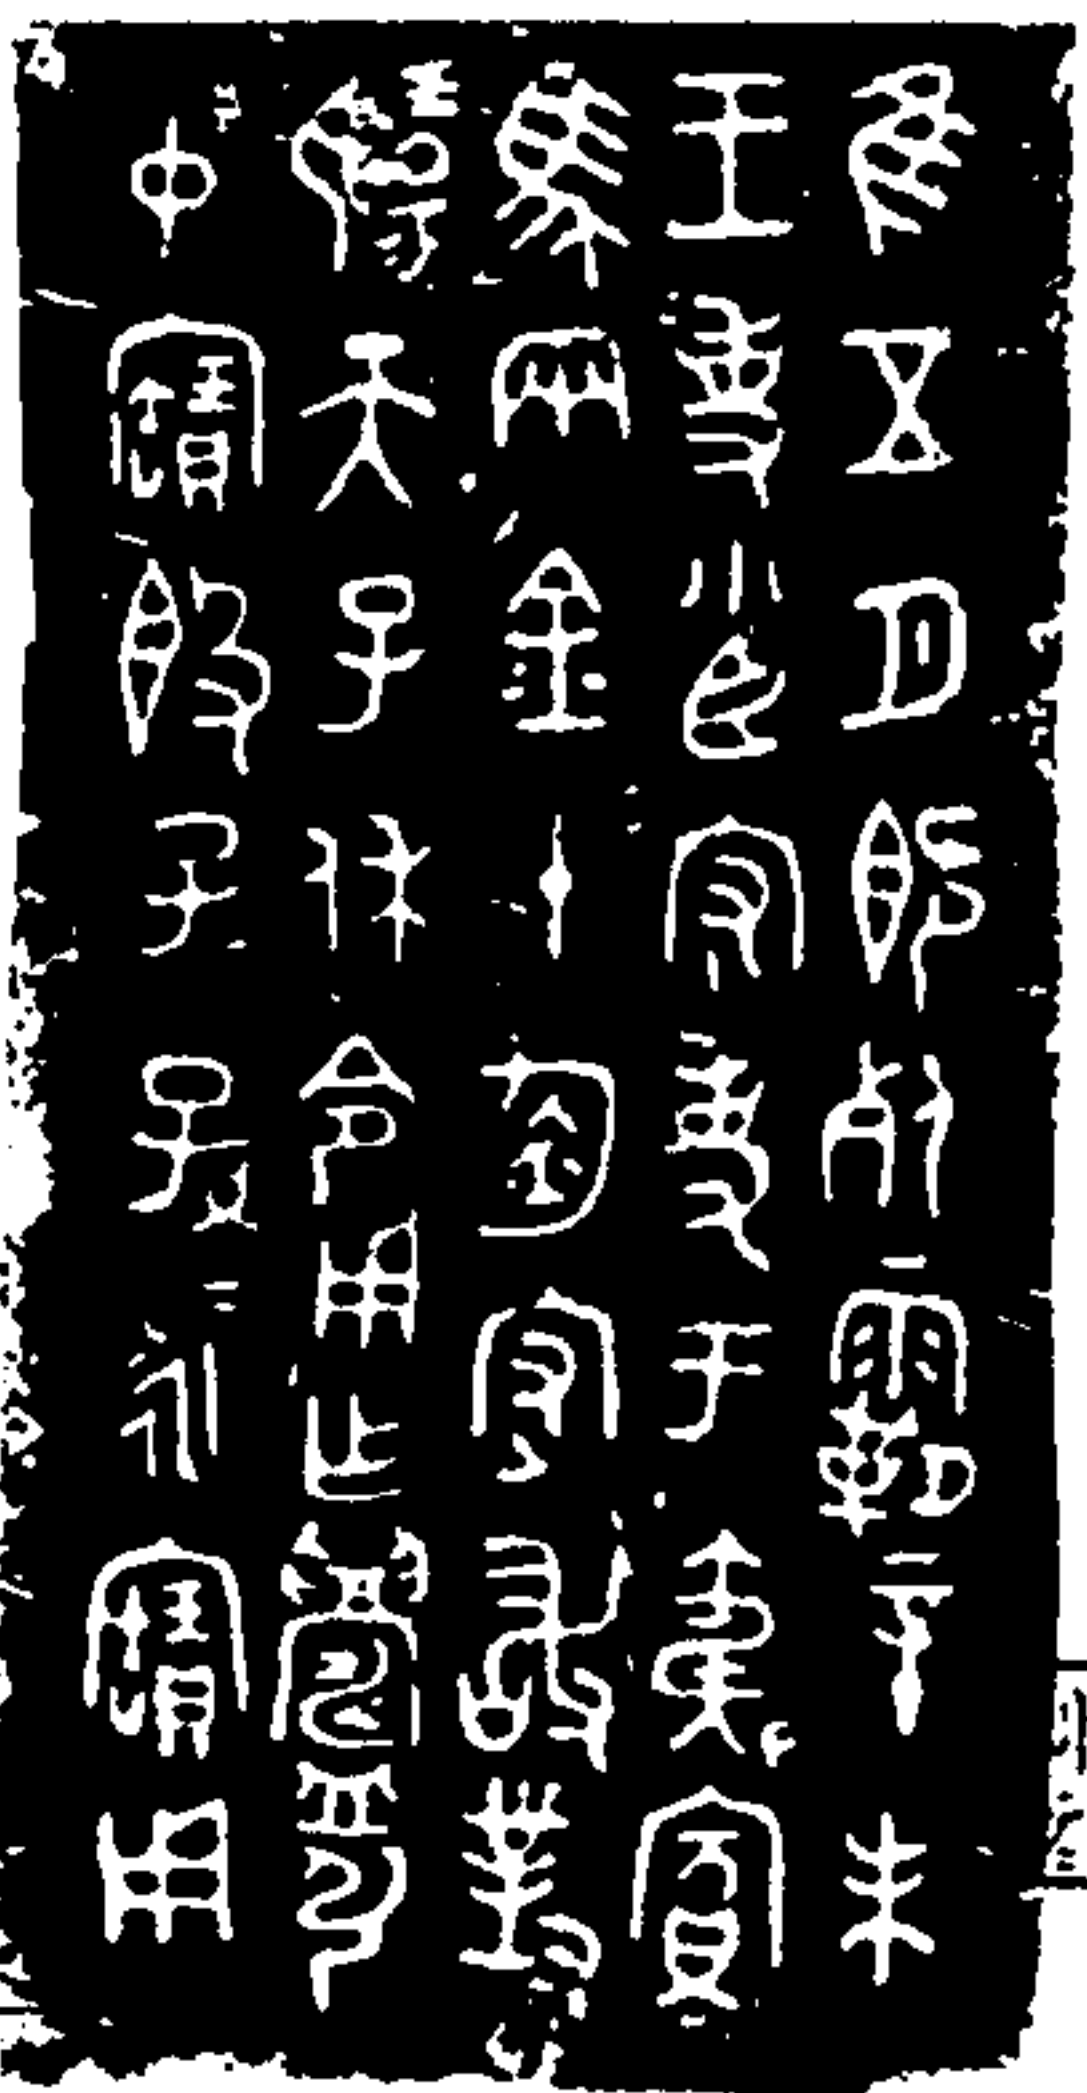 隹五月既死霸辛未
王吏小臣守吏于夷夷賓
馬兩金十鈞守敢對
揚天子休令用乍鑄引
中寶𣪘子子孫孫永寶用